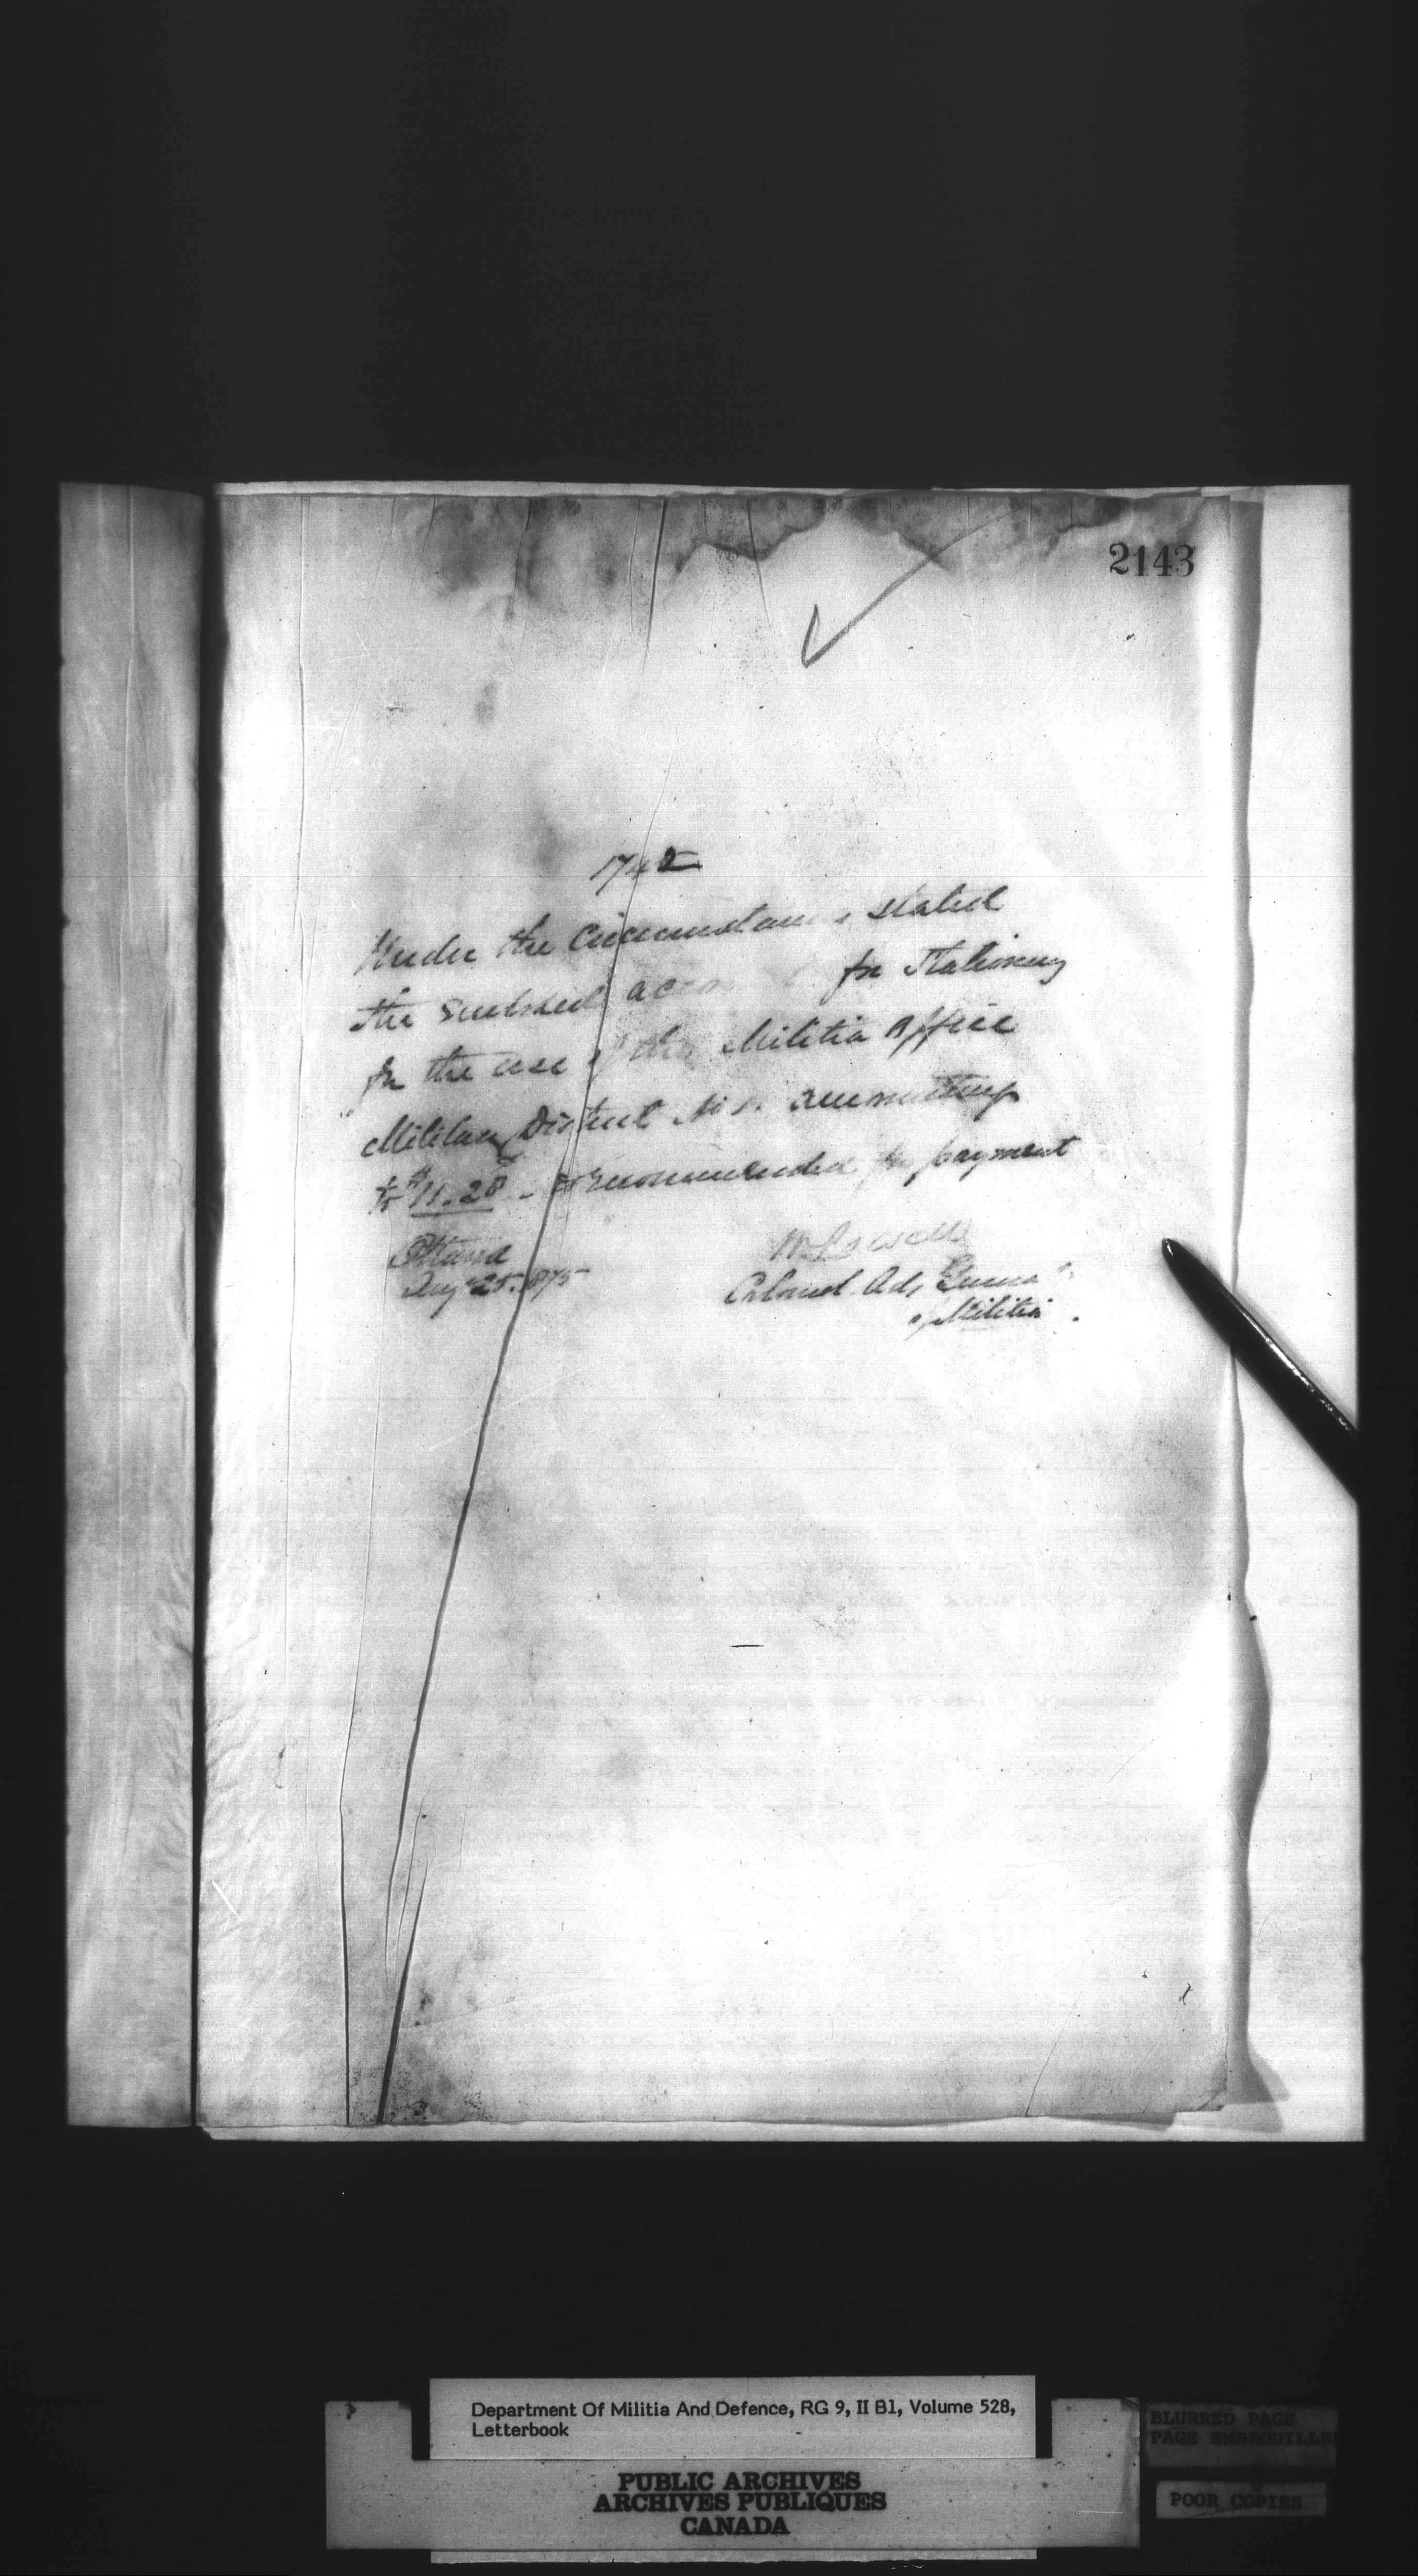 2143
1742
Under the Circumstances stated
the enclosed for Stationery
for the use of the Militia Office
Military District No amounting
to $11.28 - is recommended for payment
Ottawa
Augt 25. 1875
W Powell
Colonel Adj General
of Militia.
Department Of Militia And Defence, RG 9, II B1, Volume 528,
Letterbook
BLURRED PAGE
PAGE EMBROUILLEE
POOR COPIES
PUBLIC ARCHIVES
ARCHIVES PUBLIQUES
CANADA